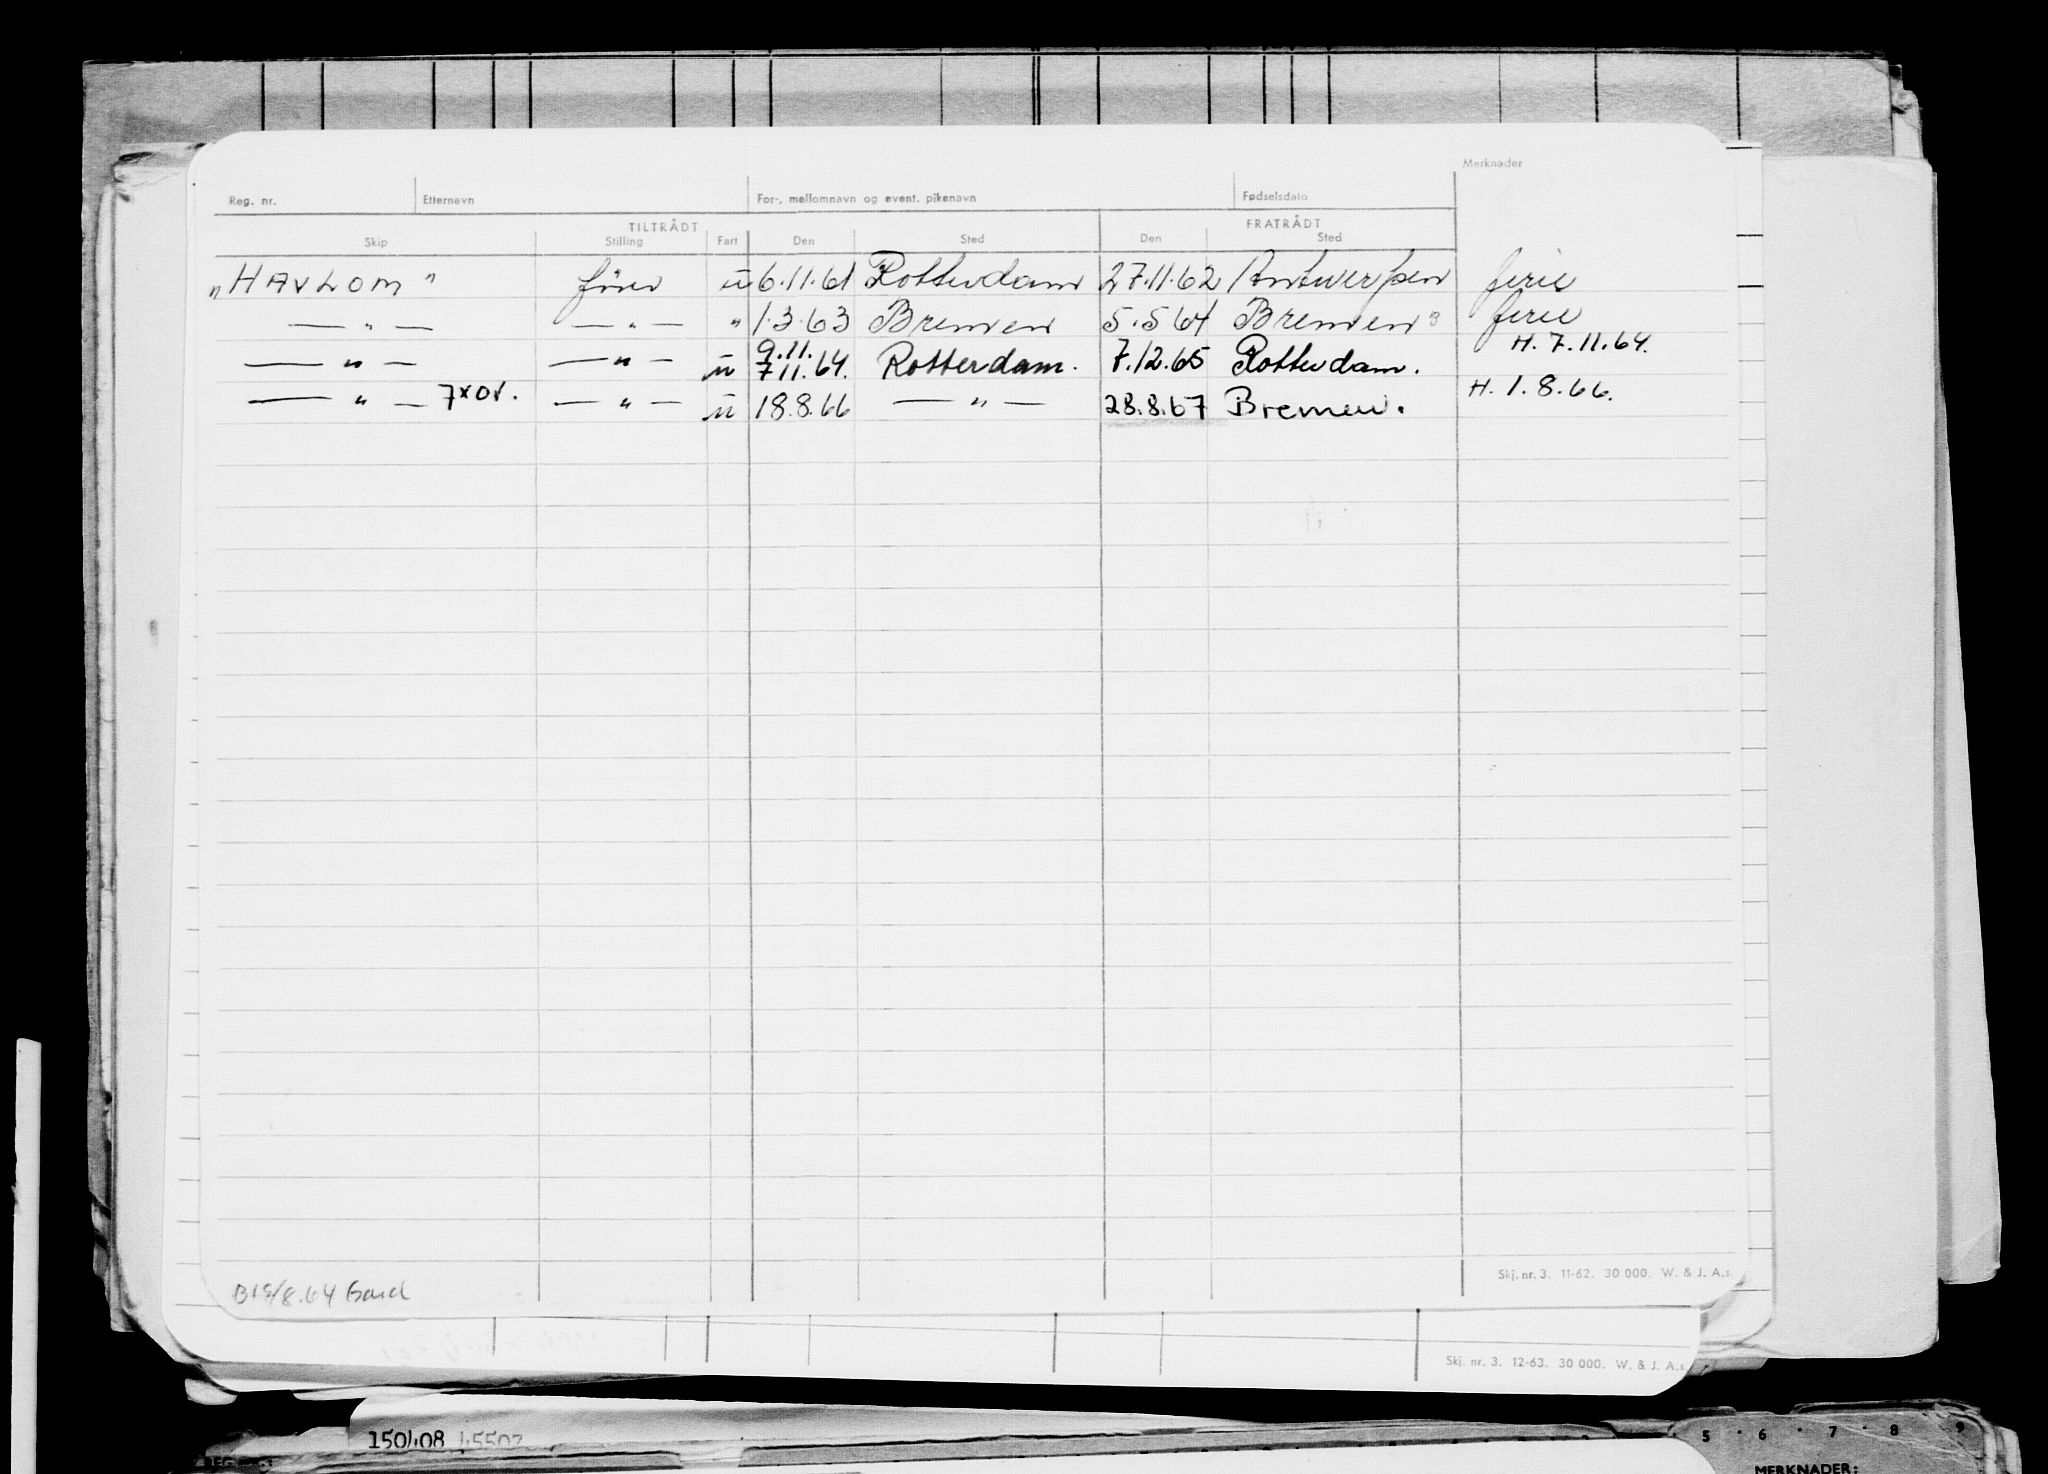 Merknader
Reg. nr. Etternavn For-, mellomnavn og event. pikenavn Fødselsdato
TILTRÅDT FRATRÅDT
Skip Stilling Fart Den Sted Den Sted
"HAVLOM" förer u 6.11.61 Rotterdam 27.11.62 Antwerpen ferie
— " — — " — " 1.3.63 Bremen 5.5.64 Bremen ferie
— " — — " — u 9.11. 7.11.64. Rotterdam. 7.12.65 Rotterdam. H. 7.11.64.
— " — 7xor. — " — u 18.8.66 — " — 28.8.67 Bremen. H. 1.8.66.
Skj. nr. 3. 11-62. 30 000. W. & J. A.s.
Skj. nr. 3. 12-63. 30 000. W. & J. A.s.
5 · 6 · 7 · 8 9
MERKNADER: